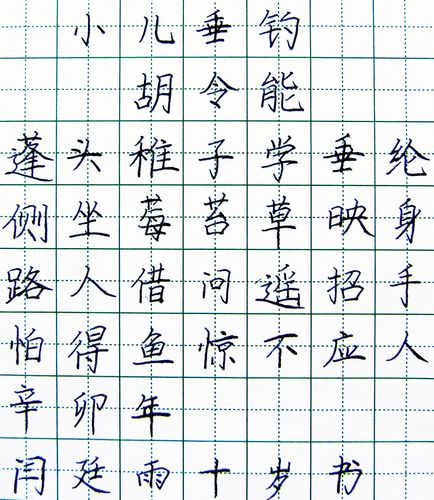 小儿垂钓
胡令能
蓬头稚子学垂纶
侧坐莓苔草映身
路人借问遥招手
怕得鱼惊不应人
辛卯年
闫廷雨十岁书